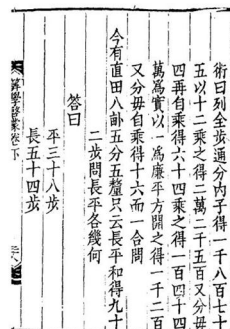 術曰列全步通分内子得一千八百七十
五以十二乘之得二萬二千五百又分母
四再自乘得六十四乘之得一百四十四
萬為實以一為廉平方開之得一千二百
又分母自乘得十六而一合問
今有直田八畝五分五釐只云長平和得九十
二步問長平各幾何
答曰
平三十八步
長五十四步
筭學啓蒙卷下